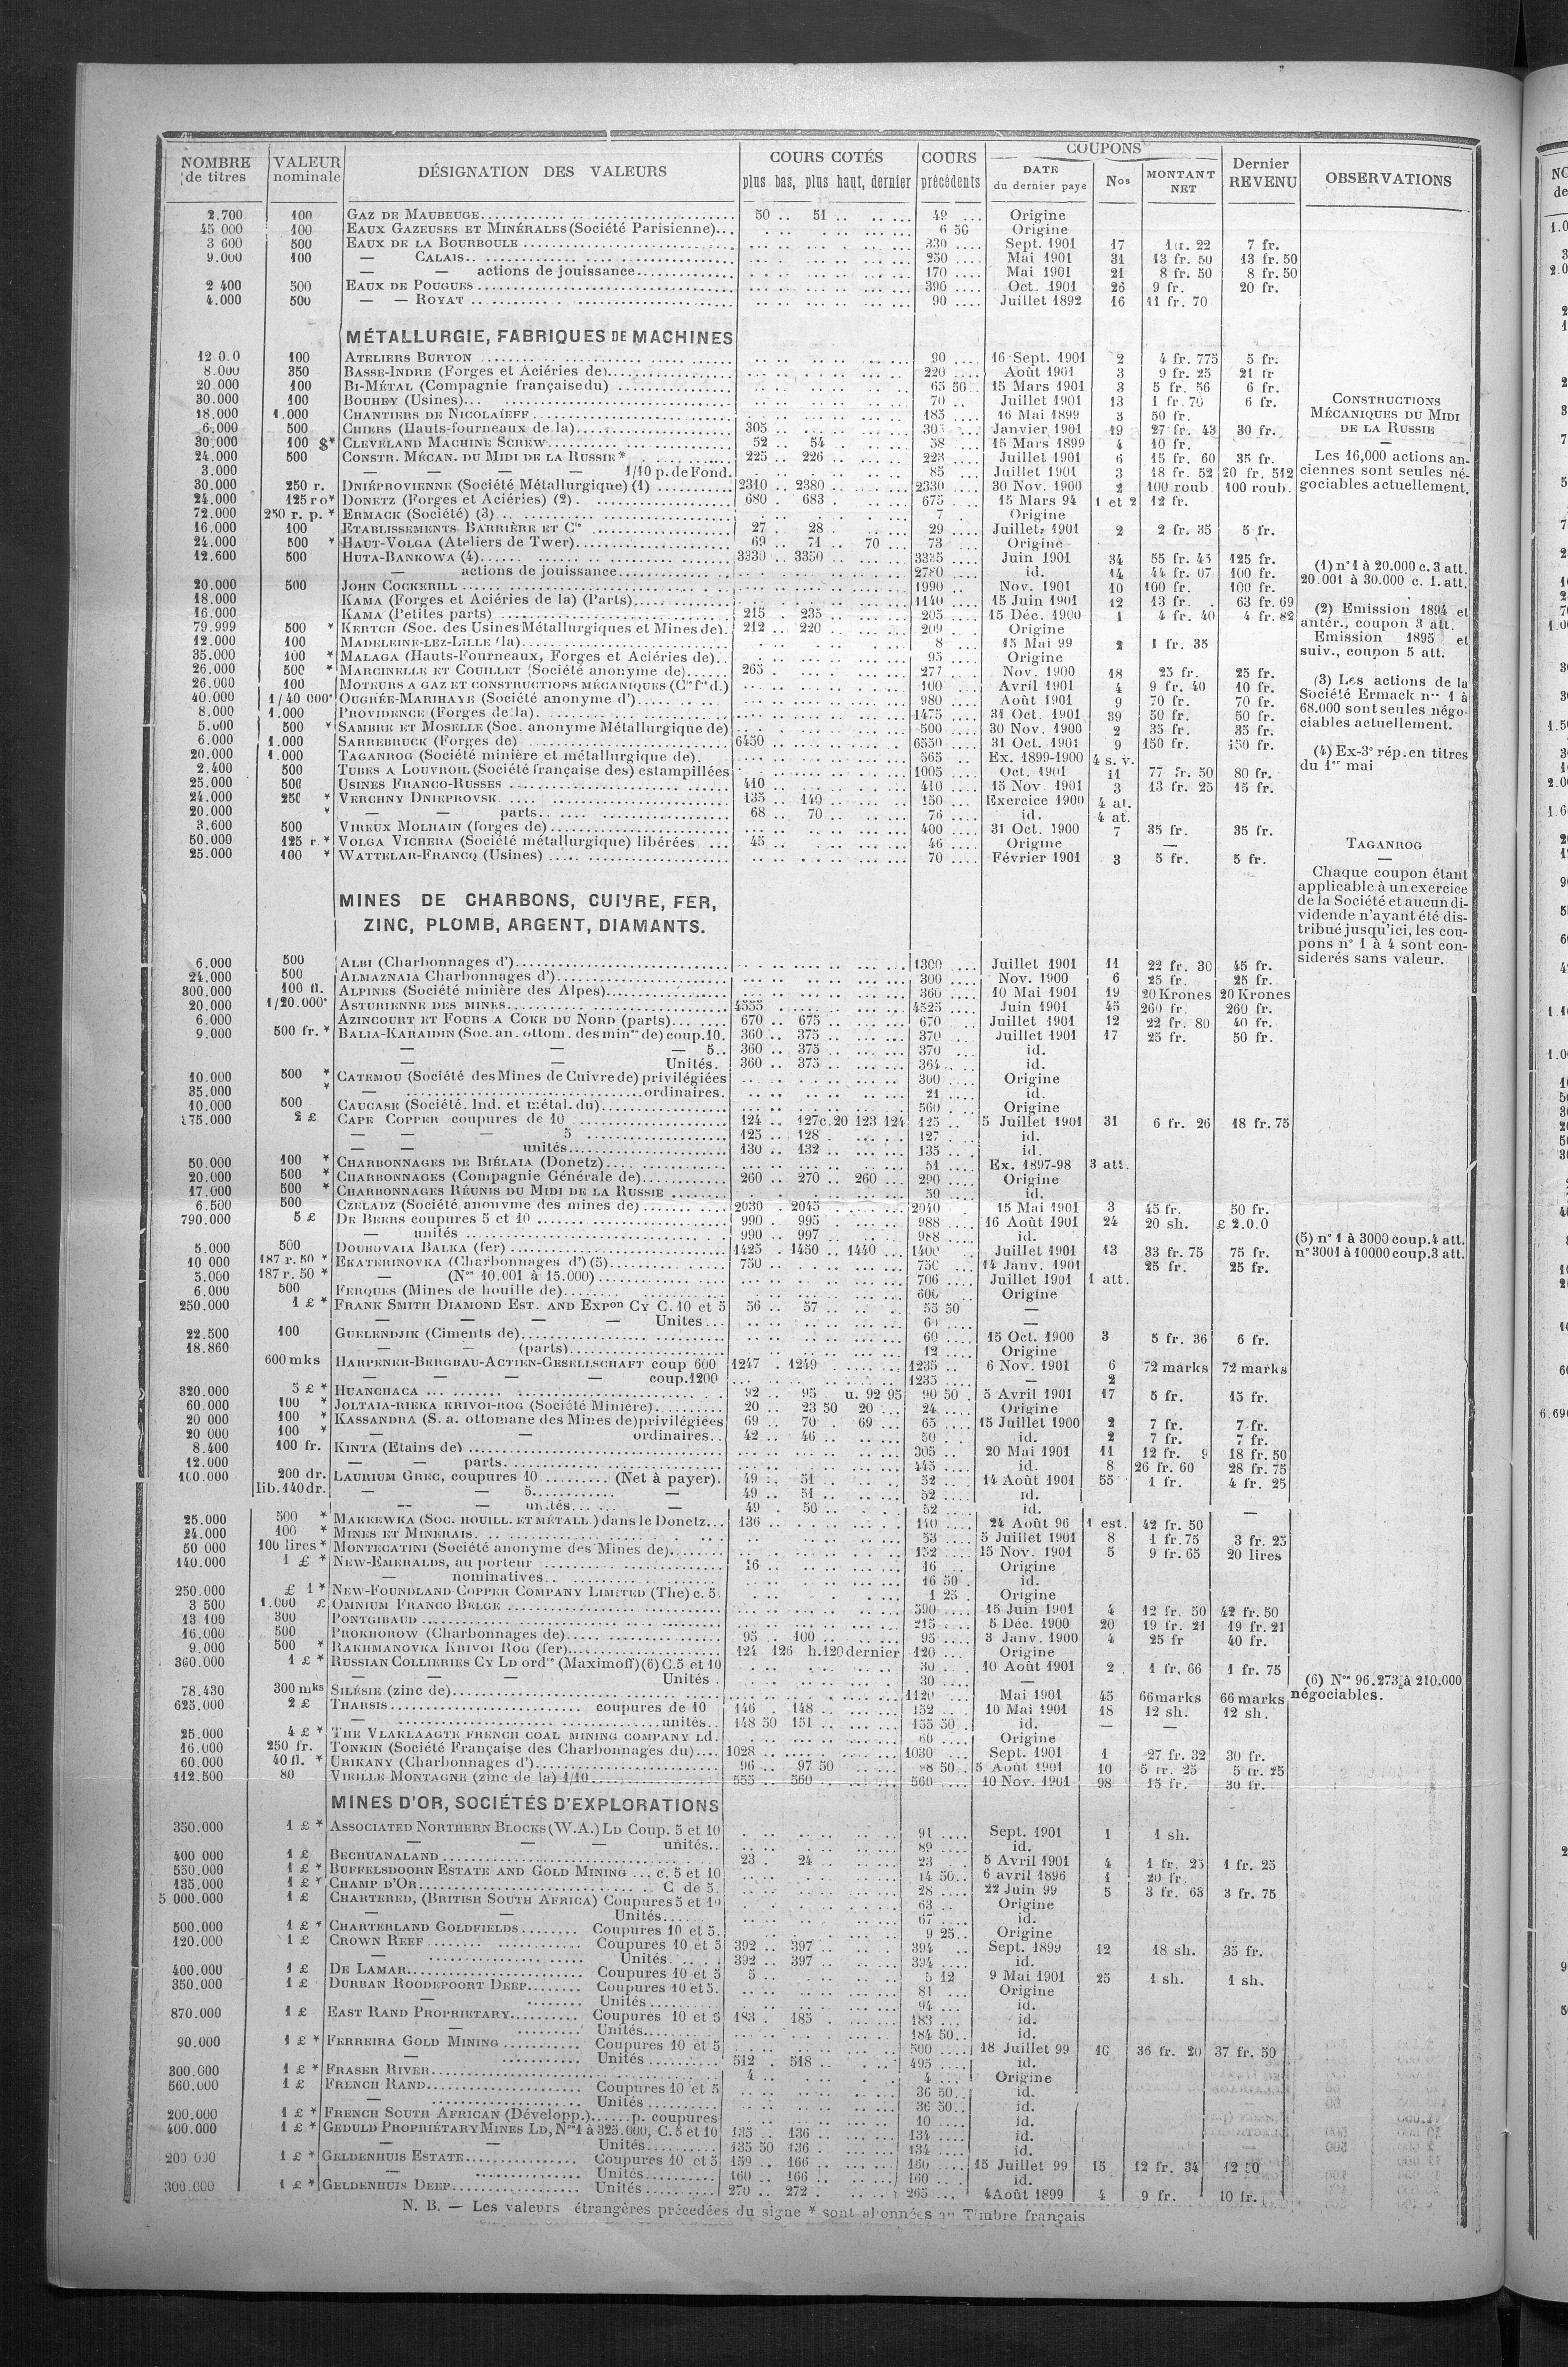 NOMBRE de titres | VALEUR nominale | DÉSIGNATION DES VALEURS | COURS COTÉS plus bas, plus haut, dernier | COURS précédents | COUPONS DATE du dernier paye | Nos | MONTANT NET | Dernier REVENU | OBSERVATIONS
2.700 100 GAZ DE MAUBEUGE 50 .. 51 .. 49 Origine
45 000 100 EAUX GAZEUSES ET MINÉRALES (Société Parisienne) 6 50 Origine
3 600 500 EAUX DE LA BOURBOULE 330 Sept. 1901 17 22 7 fr.
9.000 100 — CALAIS 250 Mai 1901 31 13 fr. 50 13 fr. 50
— — actions de jouissance 170 Mai 1901 21 8 fr. 50 8 fr. 50
2 400 500 EAUX DE POUGUES 390 Oct. 1901 26 9 fr. 20 fr.
4.000 500 — — ROYAT 90 Juillet 1892 16 11 fr. 70
MÉTALLURGIE, FABRIQUES DE MACHINES
12 0.0 100 ATELIERS BURTON 90 16 Sept. 1901 2 4 fr. 775 5 fr.
8.000 350 BASSE-INDRE (Forges et Aciéries de) 220 Août 1901 3 9 fr. 25 21 fr
20.000 100 BI-MÉTAL (Compagnie française du) 65 50 15 Mars 1901 3 5 fr. 56 6 fr.
30.000 100 BOUHEY (Usines) 70 Juillet 1901 13 1 fr. 70 6 fr.
18.000 1.000 CHANTIERS DE NICOLAÏEFF 185 16 Mai 1899 3 50 fr.
6.000 500 CHIERS (Hauts-fourneaux de la) 305 Janvier 1901 19 27 fr. 43 30 fr.
30.000 100 $* CLEVELAND MACHINE SCREW 52 .. 54 .. 58 15 Mars 1899 4 10 fr.
24.000 500 CONSTR. MÉCAN. DU MIDI DE LA RUSSIE * 225 .. 226 .. 223 Juillet 1901 6 15 fr. 60 35 fr.
3.000 — — — — 1/10 p. de Fond. 85 Juillet 1901 3 18 fr. 52 20 fr. 512
30.000 250 r. DNIÉPROVIENNE (Société Métallurgique) (1) 2310 .. 2380 2330 30 Nov. 1900 2 100 roub 100 roub.
24.000 125 ro* DONETZ (Forges et Aciéries) (2) 680 . 683 . 675 15 Mars 94 1 et 2 12 fr.
72.000 250 r. p. * ERMACK (Société) (3) 7 Origine
16.000 100 ETABLISSEMENTS BARRIÈRE ET Cie 27 28 29 Juillet 1901 2 2 fr. 35 5 fr.
24.000 500 * HAUT-VOLGA (Ateliers de Twer) 69 .. 71 .. 70 73 Origine
12.600 500 HUTA-BANKOWA (4) 3330 .. 3350 3335 Juin 1901 34 55 fr. 45 125 fr.
— actions de jouissance 2780 id. 14 44 fr. 07 100 fr.
20.000 500 JOHN COCKERILL 1990 Nov. 1901 10 100 fr. 100 fr.
18.000 KAMA (Forges et Aciéries de la) (Parts) 1140 15 Juin 1901 12 13 fr. 63 fr. 69
16.000 KAMA (Petites parts) 215 .. 235 205 15 Déc. 1900 1 4 fr. 40 4 fr. 82
79.999 500 * KERTCH (Soc. des Usines Métallurgiques et Mines de). 212 .. 220 209 Origine
12.000 100 MADELEINE-LEZ-LILLE (la) 8 15 Mai 99 2 1 fr. 35
35.000 100 * MALAGA (Hauts-Fourneaux, Forges et Aciéries de) 95 Origine
26.000 500 * MARCINELLE ET COUILLET (Société anonyme de) 265 277 Nov. 1900 18 25 fr. 25 fr.
26.000 100 MOTEURS A GAZ ET CONSTRUCTIONS MÉCANIQUES (Cie fse d.) 100 Avril 1901 4 9 fr. 40 10 fr.
40.000 1/40 000e OUGRÉE-MARIHAYE (Société anonyme d') 980 Août 1901 9 70 fr. 70 fr.
8.000 1.000 PROVIDENCE (Forges de la) 1475 31 Oct. 1901 39 50 fr. 50 fr.
5.000 500 * SAMBRE ET MOSELLE (Soc. anonyme Métallurgique de) 500 30 Nov. 1900 2 35 fr. 35 fr.
6.000 1.000 SARREBRUCK (Forges de) 6450 6550 31 Oct. 1901 9 150 fr. 150 fr.
20.000 1.000 TAGANROG (Société minière et métallurgique de). 565 Ex. 1899-1900 4 s. v.
2.400 500 TUBES A LOUVROIL (Société française des) estampillées 1005 Oct. 1901 11 77 fr. 50 80 fr.
25.000 500 USINES FRANCO-RUSSES 410 410 15 Nov 1901 3 13 fr. 25 15 fr.
24.000 250 * VERCHNY DNIEPROVSK 135 .. 140 150 Exercice 1900 4 at.
20.000 * — — parts 68 .. 70 76 id. 4 at.
3.600 500 VIREUX MOLHAIN (forges de) 400 31 Oct. 1900 7 35 fr. 35 fr.
50.000 125 r * VOLGA VICHERA (Société métallurgique) libérées 45 46 Origine —
25.000 100 * WATTELAR-FRANCQ (Usines) 70 Février 1901 3 5 fr. 5 fr.
MINES DE CHARBONS, CUIVRE, FER,
ZINC, PLOMB, ARGENT, DIAMANTS.
6.000 500 ALBI (Charbonnages d') 1300 Juillet 1901 11 22 fr. 30 45 fr.
24.000 500 ALMAZNAIA Charbonnages d') 300 Nov. 1900 6 25 fr. 25 fr.
300.000 100 fl. ALPINES (Société minière des Alpes) 360 10 Mai 1901 19 20 Krones 20 Krones
20.000 1/20.000e ASTURIENNE DES MINES 4555 4525 Juin 1901 45 260 fr. 260 fr.
6.000 AZINCOURT ET FOURS A COKE DU NORD (parts) 670 .. 675 670 Juillet 1901 12 22 fr. 80 40 fr.
9.000 500 fr. * BALIA-KARAIDIN (Soc. an. ottom. des mines de) coup. 10. 360 .. 375 370 Juillet 1901 17 25 fr. 50 fr.
— — — 5.. 360 .. 375 370 id.
— — Unités. 360 .. 375 364 id.
10.000 500 * CATEMOU (Société des Mines de Cuivre de) privilégiées 300 Origine
35.000 * — ordinaires. 21 id.
10.000 500 CAUCASE (Société. Ind. et métal. du) 560 Origine
175.000 2 £ CAPE COPPER coupures de 10 124 .. 127 c. 20 123 124 125 5 Juillet 1901 31 6 fr. 26 18 fr. 75
— — — 5 125 .. 128 127 id.
— — unités 130 .. 132 135 id.
50.000 100 * CHARBONNAGES DE BIÉLAIA (Donetz) 51 Ex. 1897-98 3 att.
20.000 500 * CHARBONNAGES (Compagnie Générale de) 260 .. 270 .. 260 290 Origine
17.000 500 * CHARBONNAGES RÉUNIS DU MIDI DE LA RUSSIE 50 id.
6.500 500 CZELADZ (Société anonyme des mines de) 2030 . 2045 2040 15 Mai 1901 3 45 fr. 50 fr.
790.000 5 £ DE BEERS coupures 5 et 10 990 .. 995 988 16 Août 1901 24 20 sh. £ 2.0.0
— unités 990 .. 997 988 id.
5.000 500 DOUBOVAIA BALKA (fer) 1425 . 1450 .. 1440 1400 Juillet 1901 13 33 fr. 75 75 fr.
10 000 187 r. 50 * EKATERINOVKA (Charbonnages d') (5) 750 750 14 Janv. 1901 25 fr. 25 fr.
5.000 187 r. 50 * — (Nos 10.001 à 15.000) 706 Juillet 1901 1 att.
6.000 500 FERQUES (Mines de houille de) 600 Origine
250.000 1 £ * FRANK SMITH DIAMOND EST. AND EXPon CY C. 10 et 5 56 .. 57 55 50 —
— — — — Unites 60 —
22.500 100 GUELENDJIK (Ciments de) 60 15 Oct. 1900 3 5 fr. 36 6 fr.
18.860 — — (parts) 12 Origine
600 mks HARPENER-BERGBAU-ACTIEN-GESELLSCHAFT coup 600 1247 . 1249 1235 6 Nov. 1901 6 72 marks 72 marks
— — — — coup. 1200 1235 — 2
320.000 5 £ * HUANCHACA 92 .. 95 u. 92 95 90 50 5 Avril 1901 17 5 fr. 15 fr.
60.000 100 * JOLTAIA-RIEKA KRIVOI-ROG (Société Minière) 20 .. 23 50 20 24 Origine
20 000 100 * KASSANDRA (S. a. ottomane des Mines de) privilégiées 69 .. 70 . 69 65 15 Juillet 1900 2 7 fr. 7 fr.
20 000 100 * — — ordinaires 42 .. 46 50 id. 2 7 fr. 7 fr.
8.400 100 fr. KINTA (Etains de) 305 20 Mai 1901 11 12 fr. 9 18 fr. 50
12.000 — — parts 445 id. 8 26 fr. 60 28 fr. 75
100.000 200 dr. LAURIUM GREC, coupures 10 (Net à payer). 49 .. 51 52 14 Août 1901 55 1 fr. 4 fr. 25
lib. 140 dr. — — 5 — 49 .. 51 52 id.
— — unités — 49 . 50 52 id. —
25.000 500 * MAKEEWKA (SOC. HOUILL. ET MÉTALL) dans le Donetz 136 140 24 Août 96 1 est. 42 fr. 50
24.000 100 * MINES ET MINERAIS 53 5 Juillet 1901 8 1 fr. 75 3 fr. 25
50 000 100 lires * MONTECATINI (Société anonyme des Mines de) 152 15 Nov. 1901 5 9 fr. 65 20 lires
140.000 1 £ * NEW-EMERALDS, au porteur 16 16 Origine
— nominatives 16 50 id.
250.000 £ 1 * NEW-FOUNDLAND COPPER COMPANY LIMITED (The) c. 5 1 25 Origine
3 500 1.000 £ OMNIUM FRANCO BELGE 590 15 Juin 1901 4 12 fr. 50 42 fr. 50
13 109 300 PONTGIBAUD 215 5 Déc. 1900 20 19 fr. 21 19 fr. 21
16.000 500 PROKHOROW (Charbonnages de) 95 .. 100 95 3 Janv. 1900 4 25 fr 40 fr.
9.000 500 * RAKHMANOVKA KRIVOI ROG (fer) 124 126 h. 120 dernier 120 Origine
360.000 1 £ * RUSSIAN COLLIERIES CY LD ordres (Maximoff) (6) C. 5 et 10 30 10 Août 1901 2 1 fr. 66 1 fr. 75
— — — Unités 30 —
78.430 300 mks SILÉSIE (zinc de) 1120 Mai 1901 45 66 marks 66 marks
625.000 2 £ THARSIS coupures de 10 146 . 148 152 10 Mai 1901 18 12 sh. 12 sh.
— unités 148 50 151 155 50 id. — —
25.000 4 £ * THE VLAKLAAGTE FRENCH COAL MINING COMPANY LD. 60 Origine
16.000 250 fr. TONKIN (Société Française des Charbonnages du) 1028 1030 Sept. 1901 1 27 fr. 32 30 fr.
60.000 40 fl. * URIKANY (Charbonnages d') 96 .. 97 50 98 50 5 Août 1901 10 5 fr. 25 5 fr. 25
112.500 80 VIEILLE MONTAGNE (zinc de la) 1/10 555 .. 560 560 10 Nov. 1901 98 15 fr. 30 fr.
MINES D'OR, SOCIÉTÉS D'EXPLORATIONS
350.000 1 £ * ASSOCIATED NORTHERN BLOCKS (W.A.) LD Coup. 5 et 10 91 Sept. 1901 1 1 sh.
— — — unités 89 id.
400 000 1 £ BECHUANALAND 23 . 24 23 5 Avril 1901 4 1 fr. 25 1 fr. 25
550.000 1 £ * BUFFELSDOORN ESTATE AND GOLD MINING c. 5 et 10 14 50 6 avril 1896 1 20 fr.
135.000 1 £ * CHAMP D'OR C de 5. 28 22 Juin 99 5 3 fr. 63 3 fr. 75
5 000.000 1 £ CHARTERED, (BRITISH SOUTH AFRICA) Coupures 5 et 10 63 Origine
— — Unités 67 id.
500.000 1 £ * CHARTERLAND GOLDFIELDS Coupures 10 et 5. 9 25 Origine
120.000 1 £ CROWN REEF Coupures 10 et 5 392 .. 397 394 Sept. 1899 12 18 sh. 35 fr.
— Unités 392 .. 397 394 id.
400.000 1 £ DE LAMAR Coupures 10 et 5 5 5 12 9 Mai 1901 25 1 sh. 1 sh.
350.000 1 £ DURBAN ROODEPOORT DEEP Coupures 10 et 5. 81 Origine
— Unités 94 id.
870.000 1 £ EAST RAND PROPRIETARY Coupures 10 et 5 183 . 185 183 id.
— Unités 184 50 id.
90.000 1 £ * FERREIRA GOLD MINING Coupures 10 et 5 500 18 Juillet 99 16 36 fr. 20 37 fr. 50
— Unités 512 . 518 495 id.
300.000 1 £ * FRASER RIVER 4 4 Origine
560.000 1 £ FRENCH RAND Coupures 10 et 5 36 50 id.
— Unités 36 50 id.
200.000 1 £ * FRENCH SOUTH AFRICAN (Développ.) p. coupures 10 id.
400.000 1 £ * GEDULD PROPRIÉTARY MINES LD, Nos 1 à 325.000, C. 5 et 10 135 .. 136 134 id.
— — Unités 135 50 136 134 id.
200 000 1 £ * GELDENHUIS ESTATE Coupures 10 et 5 159 .. 166 160 15 Juillet 99 15 12 fr. 34 12 50
— Unités 160 .. 166 160 id.
300.000 1 £ * GELDENHUIS DEEP Unités 270 .. 272 265 4 Août 1899 4 9 fr. 10 fr.
N. B. — Les valeurs étrangères précedées du signe * sont abonnées au Timbre français
CONSTRUCTIONS
MÉCANIQUES DU MIDI
DE LA RUSSIE
—
Les 16,000 actions an-
ciennes sont seules né-
gociables actuellement.
(1) n° 1 à 20.000 c. 3 att.
20.001 à 30.000 c. 1. att.
(2) Emission 1894 et
antér., coupon 3 att.
Emission 1895 et
suiv., coupon 5 att.
(3) Les actions de la
Société Ermack nos 1 à
68.000 sont seules négo-
ciables actuellement.
(4) Ex-3e rép. en titres
du 1er mai
TAGANROG
—
Chaque coupon étant
applicable à un exercice
de la Société et aucun di-
vidende n'ayant été dis-
tribué jusqu'ici, les cou-
pons n° 1 à 4 sont con-
siderés sans valeur.
(5) n° 1 à 3000 coup. 4 att.
n° 3001 à 10000 coup. 3 att.
(6) Nos 96.273 à 210.000
négociables.